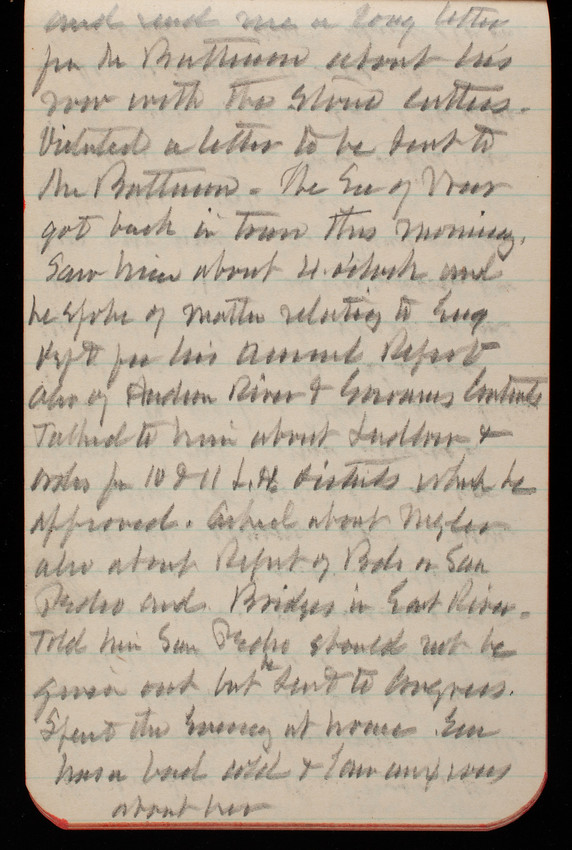 and read me a long letter
from Mr Batterson about his
row with the Stone cutters.
Dictated a letter to be sent to
Mr Batterson - The Sec of War
got back in town this morning.
Saw him about 4. o'clock and
he spoke of matter relating to Eng
Dept for his Annual Report
also of Hudson River & Gowanus Contracts
Talked to him about Ludlow &
orders for 10 & 11 L.H. districts which he
approved. Asked about
also about Report of Bds on San
Pedro and Bridges in East River.
Told him San Pedro should not be
given out but be sent to Congress.
Spent the Evening at home. Em
has a bad cold & I am anxious
about her